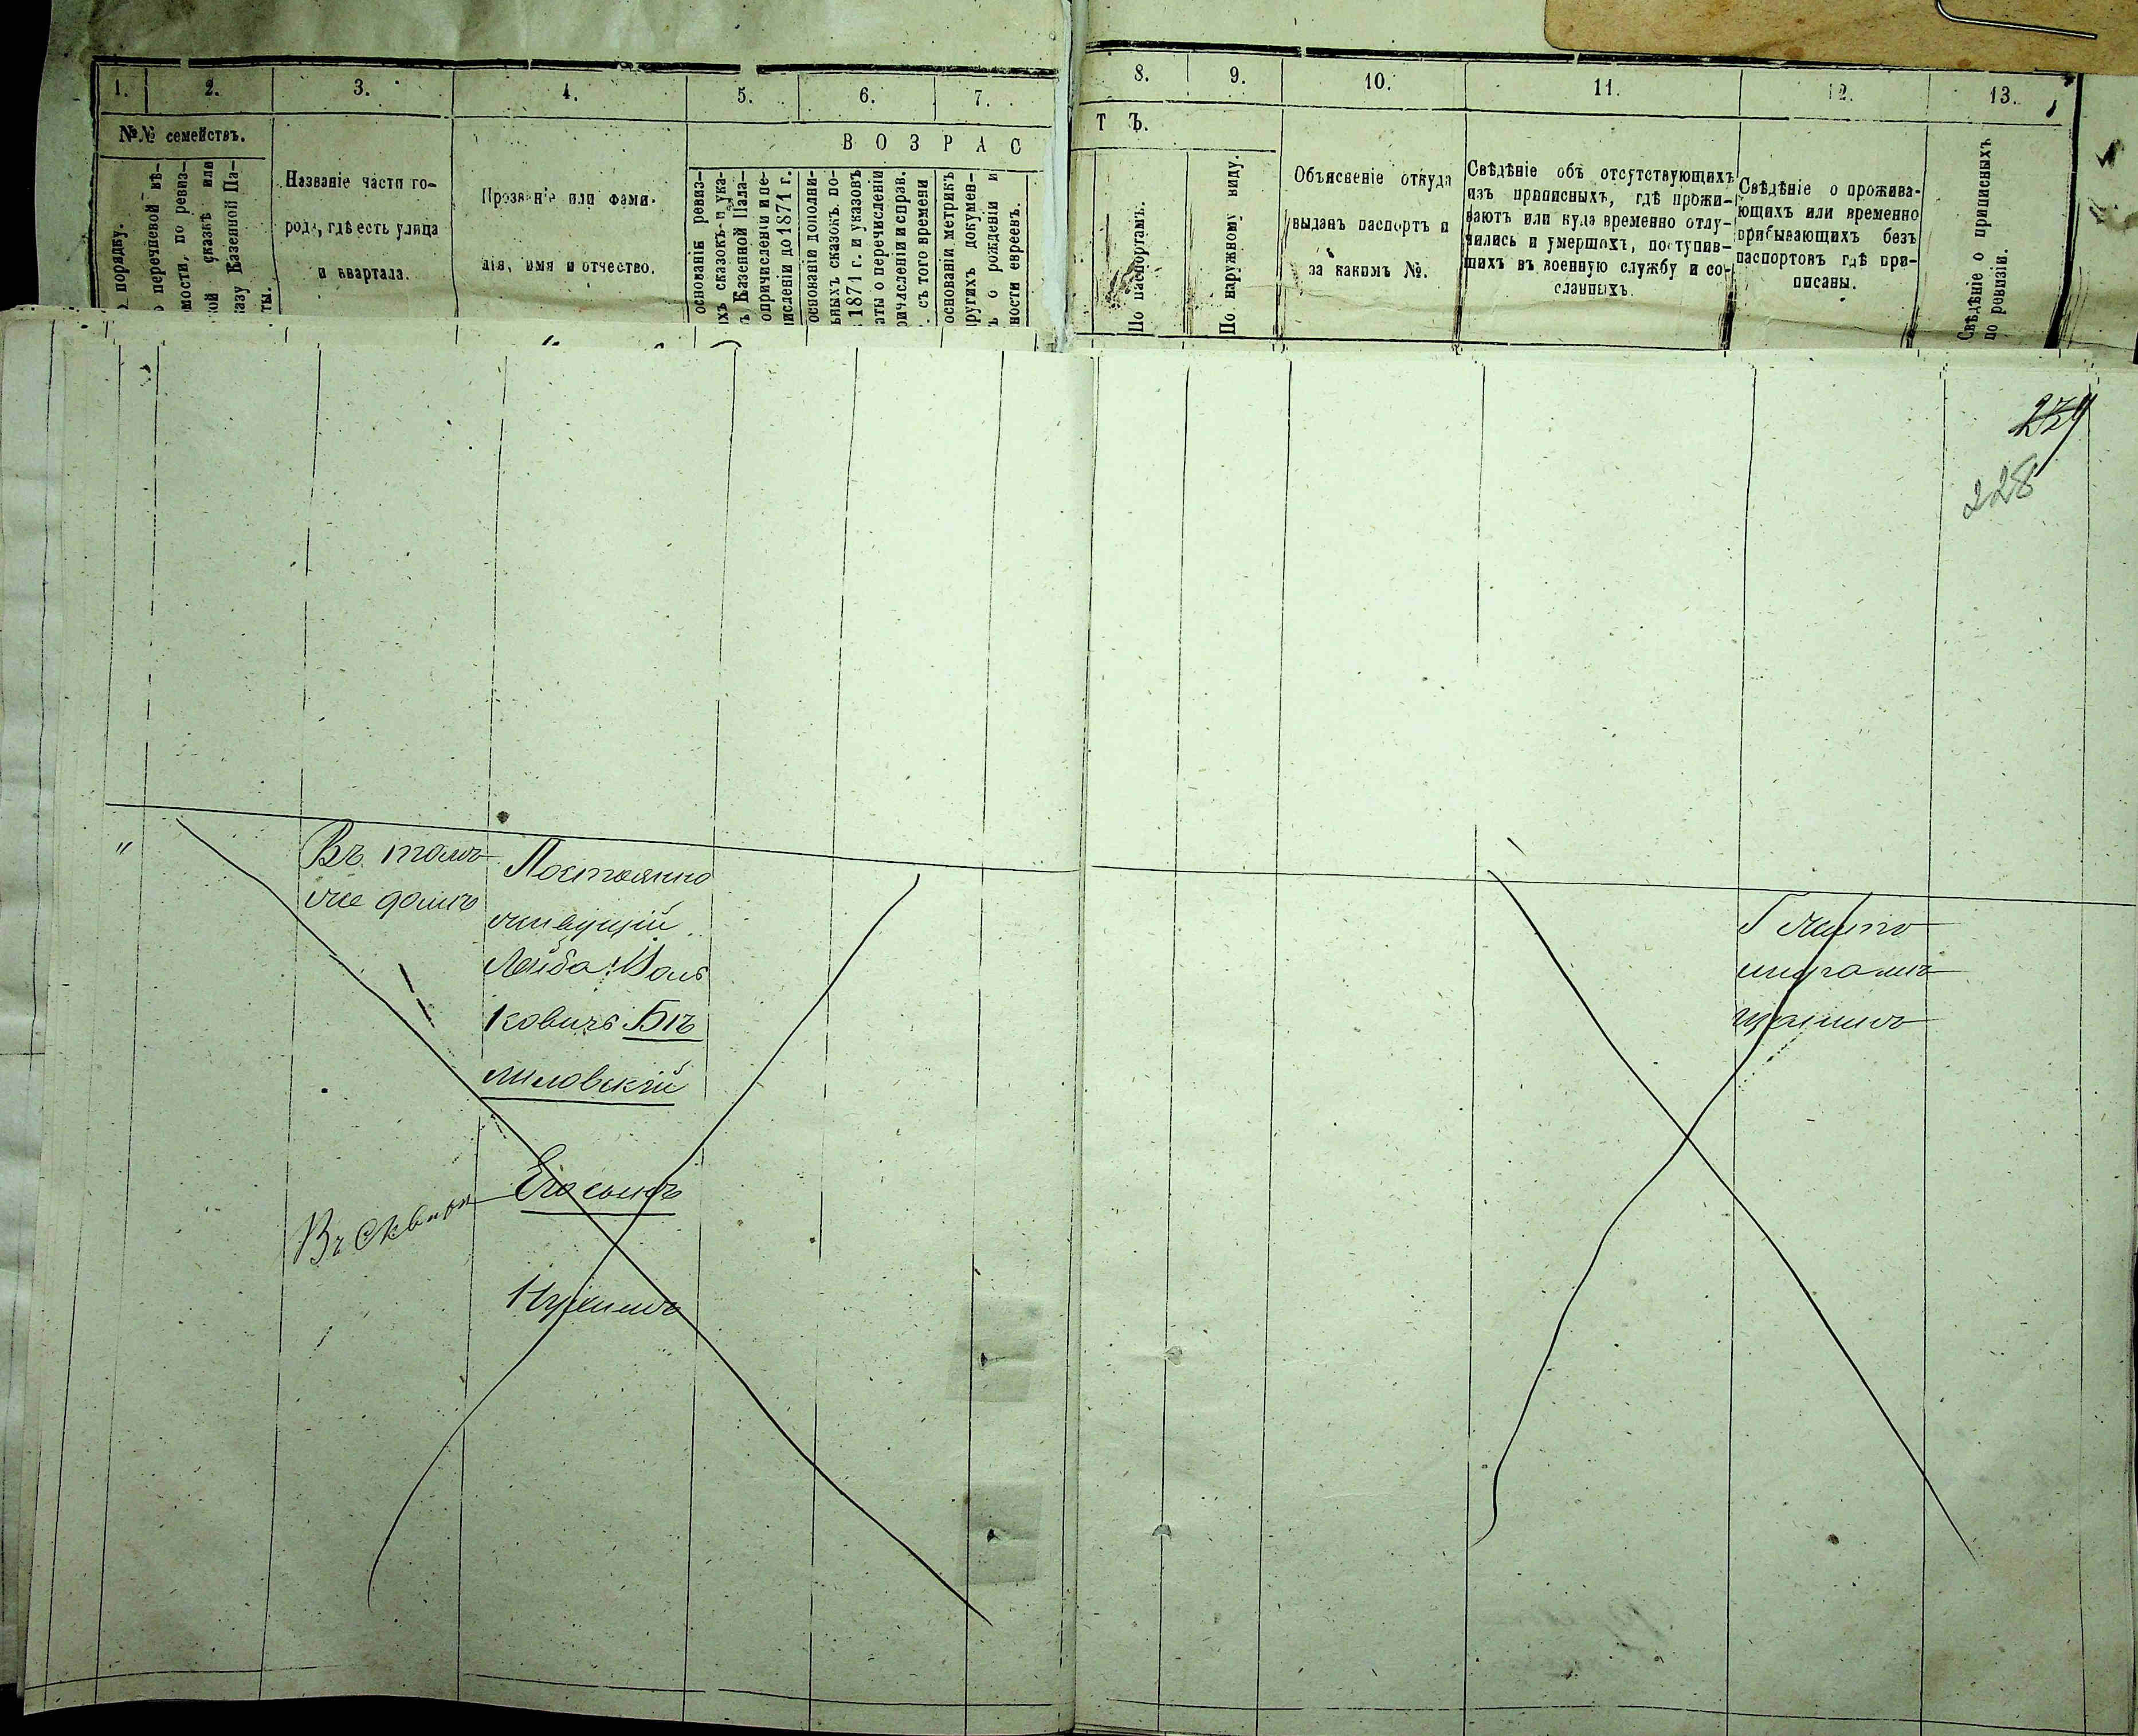 1.
2.
3.
4.
5.
6.
7.
8.
9.
10.
11.
12.
13.
№№ семействъ.
порядку.
перечневой вѣ-
мости, по ревиз-
кой сказкѣ или
казу Казенной Па-
ты.
Названіе части го-
рода, гдѣ есть улица
и квартала.
Прозваніе или фами-
лія, имя и отчество.
ВОЗРАС
основаніи ревиз-
хъ сказокъ и ука-
ъ Казенной Пала-
о причисленіи и пе-
численіи до 1871 г.
основаніи дополни-
ьныхъ сказокъ по-
1871 г. и указовъ
аты о перечисленіи
ричисленіи и справ.
съ того времени
основаніи метрикъ
ругихъ докумен-
ъ о рожденіи и
ности евреевъ.
ТЪ.
По паспортамъ.
По наружному виду.
Объясненіе откуда
выданъ паспортъ и
за какимъ №.
Свѣдѣніе объ отсутствующихъ
изъ приписныхъ, гдѣ прожи-
ваютъ или куда временно отлу-
чились и умершихъ, поступив-
шихъ въ военную службу и со-
сланныхъ.
Свѣдѣніе о прожива-
ющихъ или временно
прибывающихъ безъ
паспортовъ гдѣ при-
писаны.
Свѣдѣніе о приписныхъ
по ревизіи.
228
"
Въ томъ
же домѣ
Постоянно
живущій
Лейба Воль
ковичъ Бѣ
лиловскій
Его сынъ
Въ Сквирѣ
Нухимъ